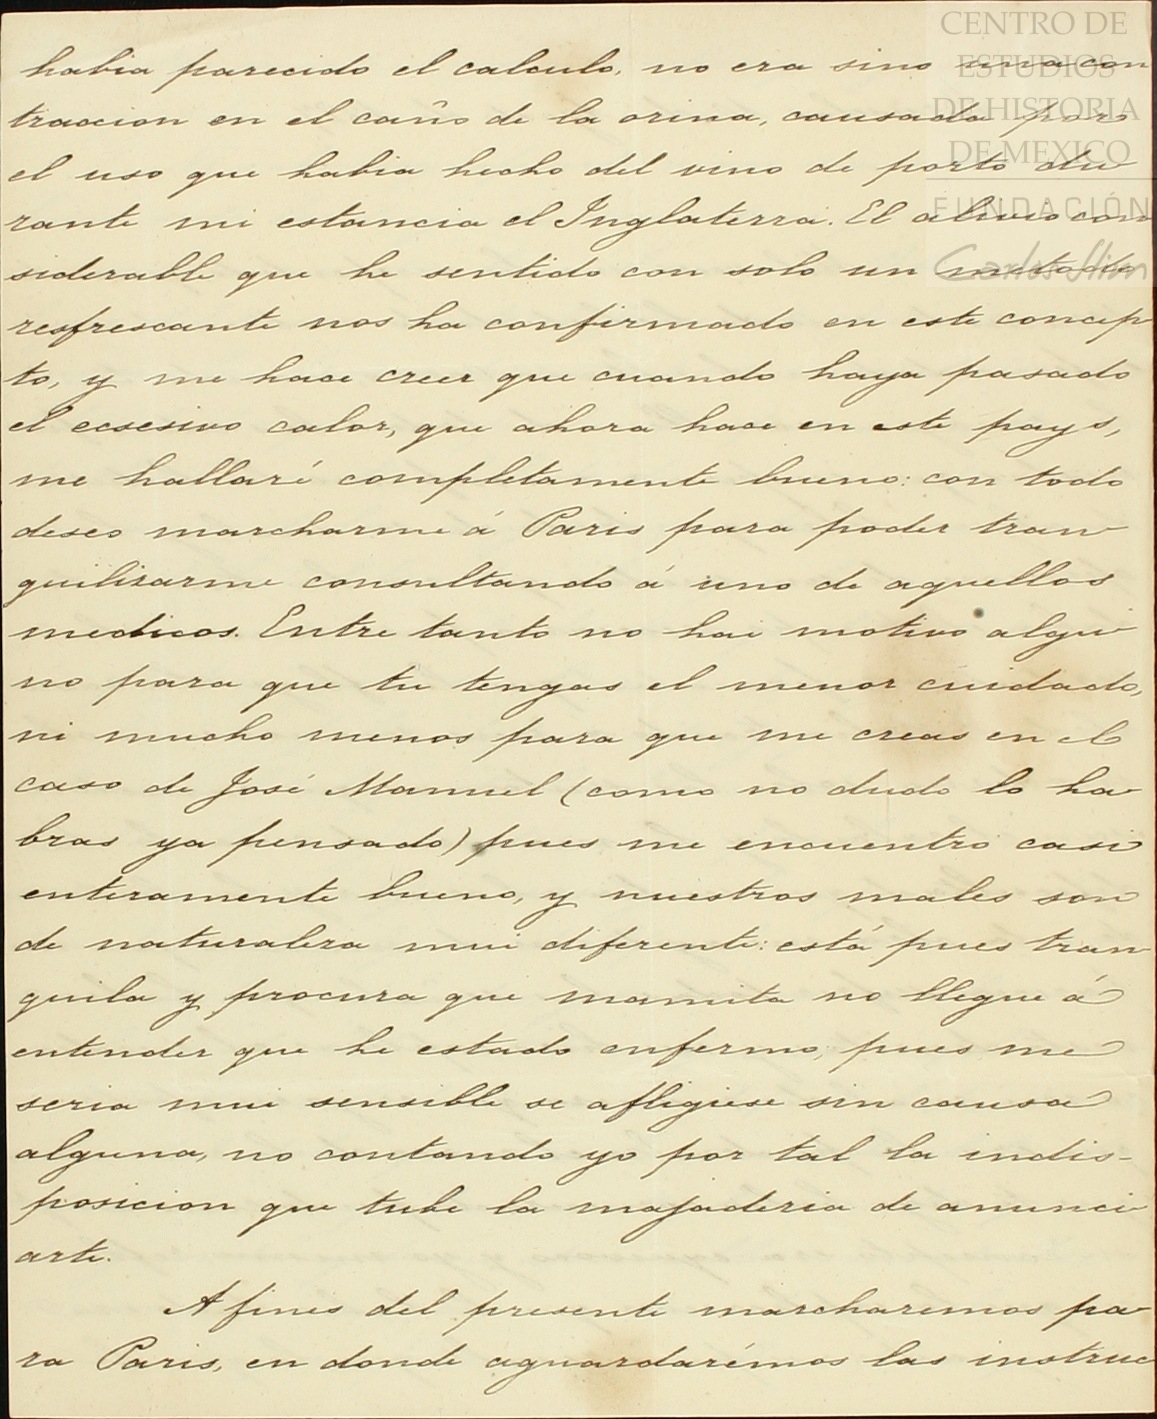 CENTRO DE
ESTUDIOS
DE HISTORIA
DE MEXICO
FUNDACIÓN
Carlos Slim
habia parecido el calculo, no era sino una con
traccion en el caño de la orina, causada por
el uso que habia hecho del vino de porto du
rante mi estancia el Inglaterra. El alivio con
siderable que he sentido con solo un metodo
resfrescante nos ha confirmado en este concep
to, y me hace creer que cuando haya pasado
el ecsesivo calor, que ahora hace en este pays,
me hallaré completamente bueno: con todo
deseo marcharme á Paris para poder tran
quilizarme consultando á uno de aquellos
medicos. Entre tanto no hai motivo algu
no para que tu tengas el menor cuidado,
ni mucho menos para que me creas en el
caso de José Manuel (como no dudo lo ha
bras ya pensado) pues me encuentro casi
enteramente bueno, y nuestros males son
de naturaleza mui diferente: está pues tran
quila y procura que mamita no llegue á
entender que he estado enfermo, pues me
seria mui sensible se afligiese sin causa
alguna, no contando yo por tal la indis-
posicion que tube la majaderia de anunci
arte.
A fines del presente marcharemos pa
ra Paris, en donde aguardarémos las instruc